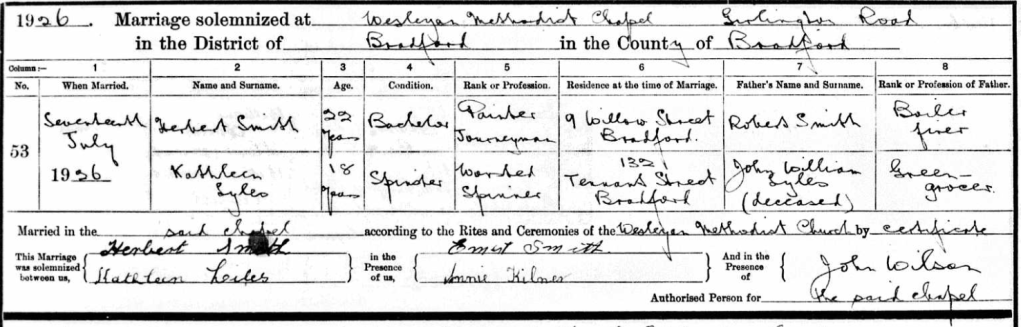 1926. Marriage solemnized at Wesleyan Methodist Chapel Girlington Road
in the District of Bradford in the County of Bradford
Column :— 1 2 3 4 5 6 7 8
No. When Married. Name and Surname. Age. Condition. Rank or Profession. Residence at the time of Marriage. Father's Name and Surname. Rank or Profession of Father.
53
Seventeenth July 1926
Herbert Smith
22 years
Bachelor
Painter Journeyman
9 Willow Street Bradford.
Robert Smith
Boiler firer
Kathleen Lyles
18 years
Spinster
Worsted Spinner
132, Tennant Street Bradford
John William Lyles (deceased)
Green-grocer.
Married in the said chapel according to the Rites and Ceremonies of the Wesleyan Methodist Church by certificate
This Marriage was solemnized between us,
Herbert Smith
Kathleen
in the Presence of us,
Ernest Smith
Annie Kilner
And in the Presence of
John Wilson
Authorised Person for the said chapel